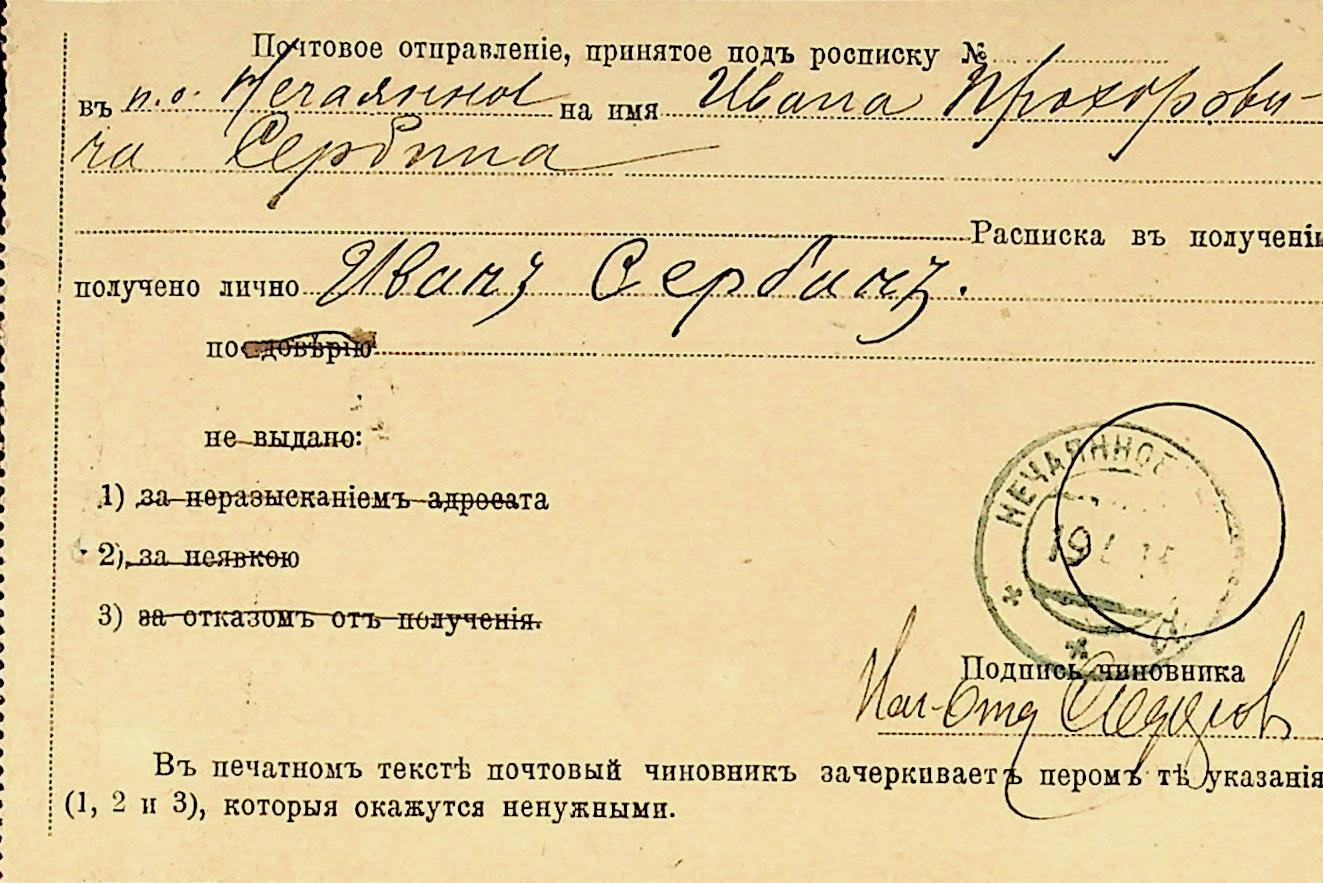 Почтовое отправленіе, принятое подъ росписку №
въ п.о. Нечаянное на имя Ивана Прохорови-
ча Сербина
Расписка въ полученіи
получено лично Иванъ Сербинъ.
по довѣрію
не выдано:
1) за неразысканіемъ адресата
2) за неявкою
3) за отказомъ отъ полученія.
НЕЧАЯННОЕ
19
Подпись чиновника
Нач-Отд
Въ печатномъ текстѣ почтовый чиновникъ зачеркиваетъ перомъ тѣ указанія
(1, 2 и 3), которыя окажутся ненужными.